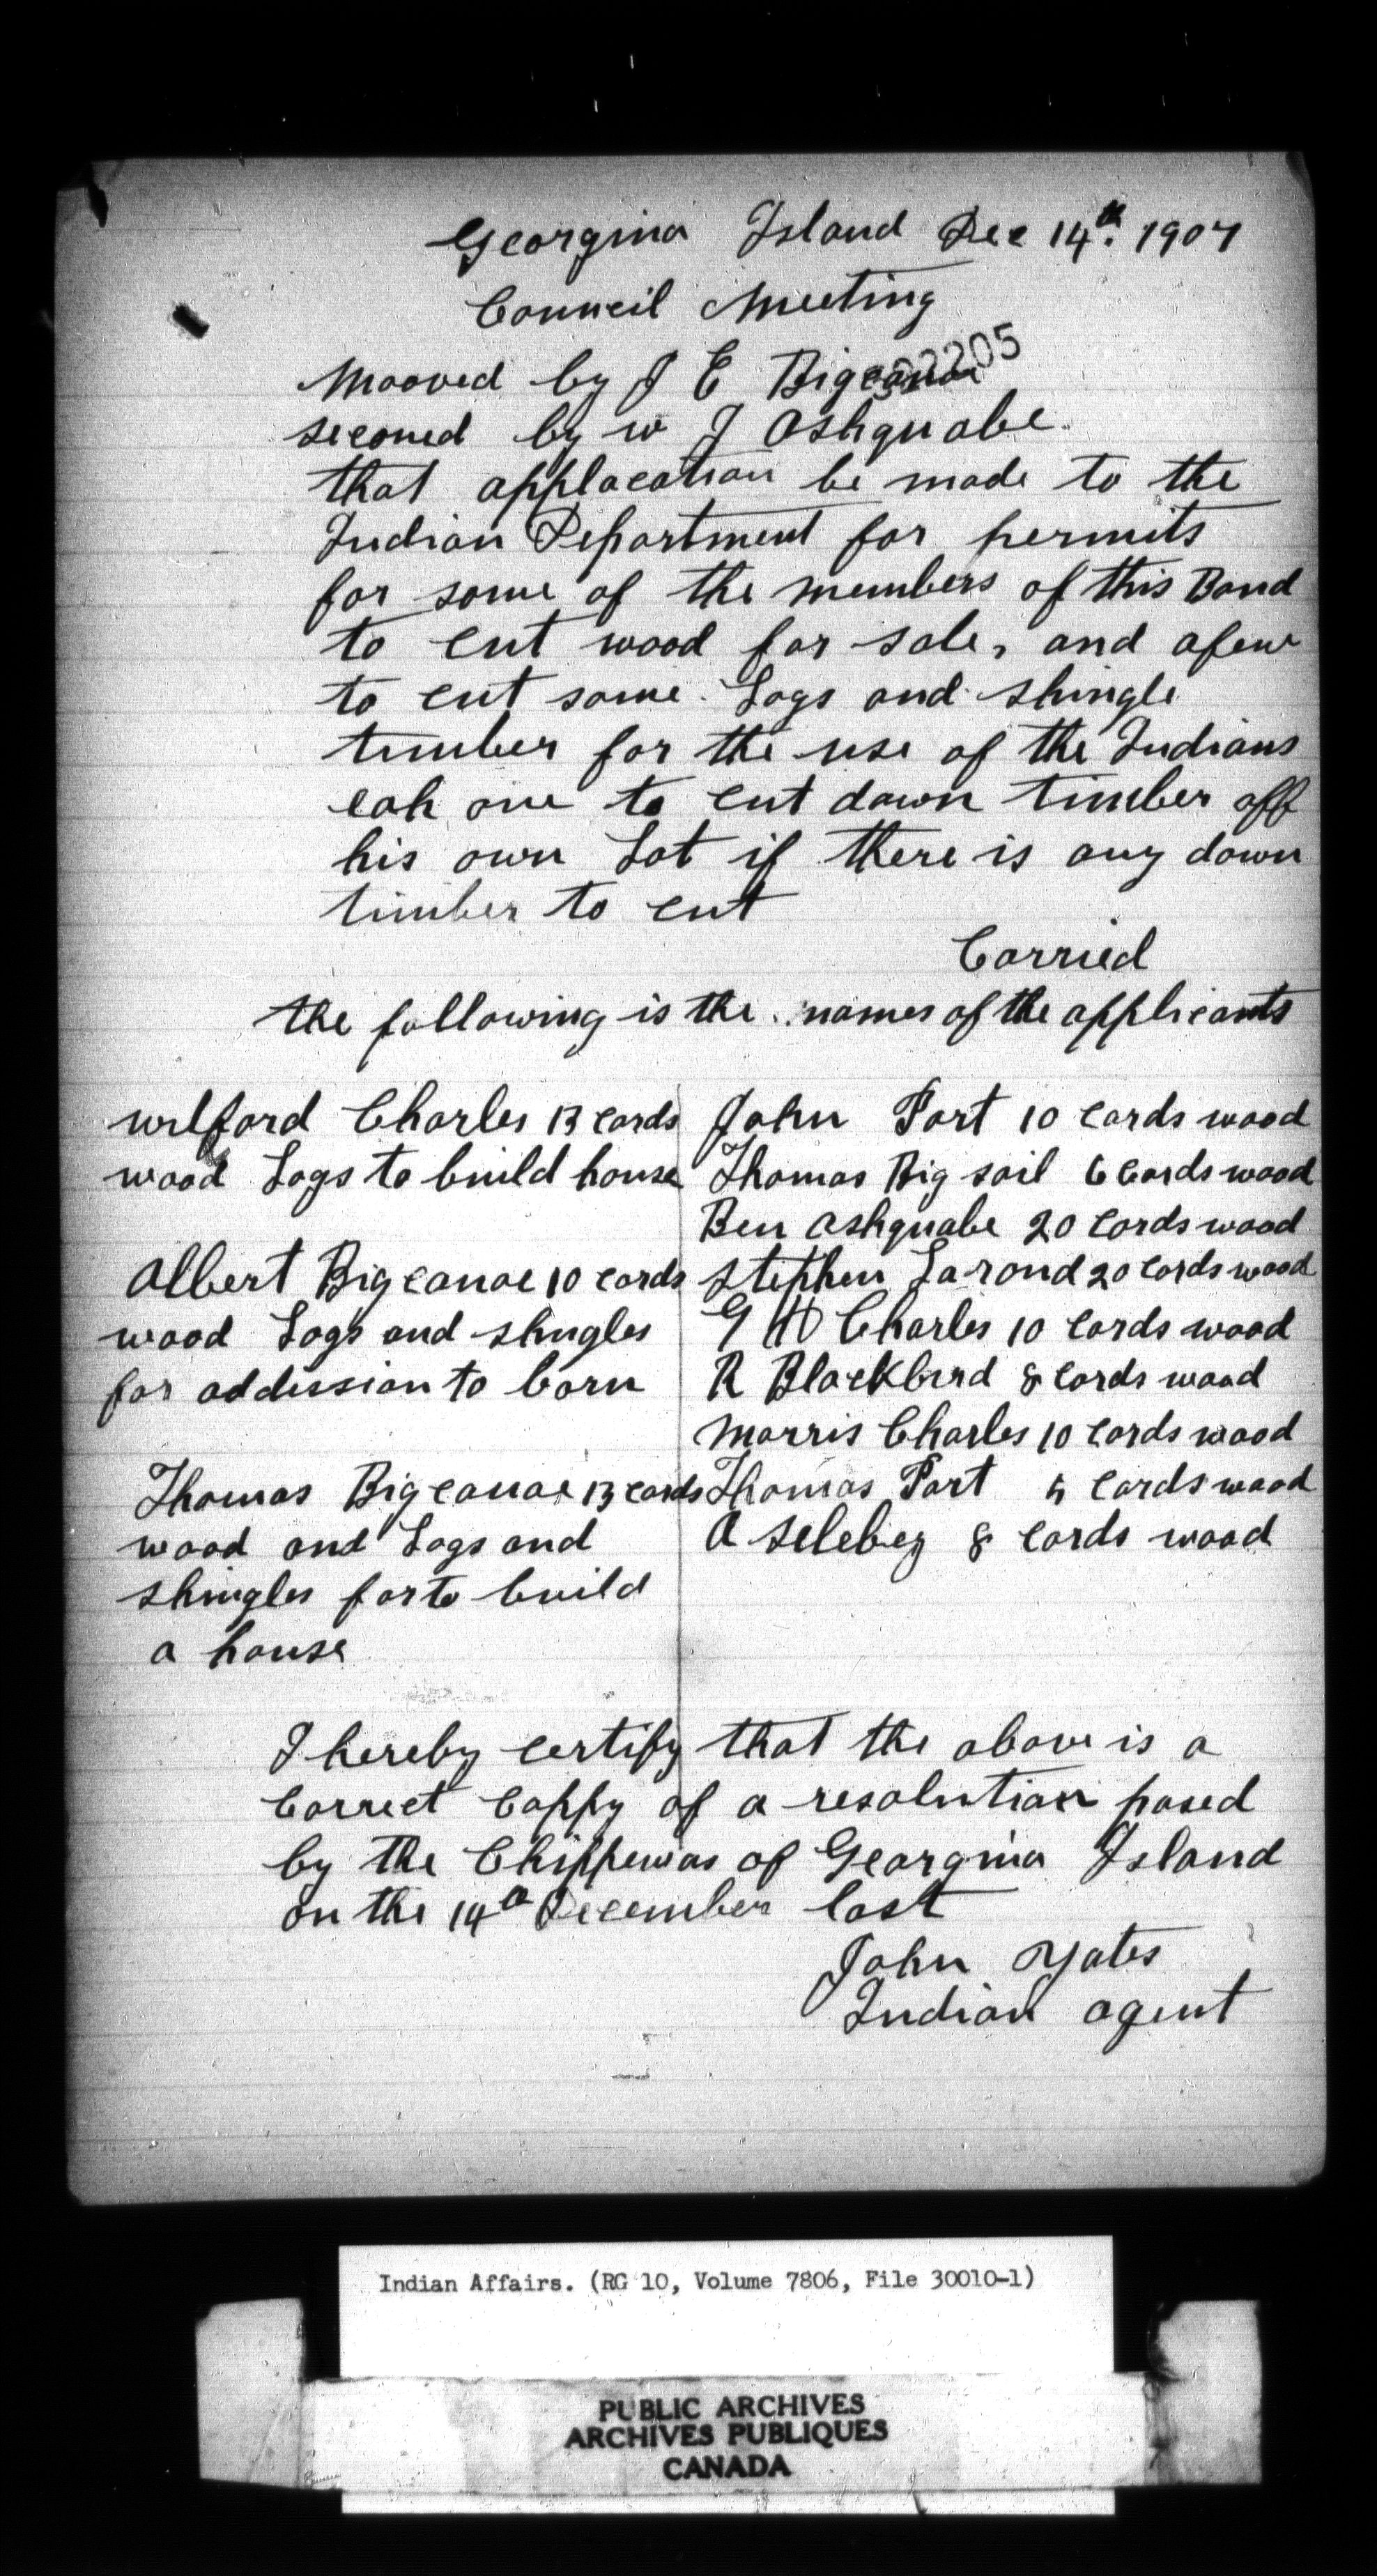 Georgina Island Dec 14th. 1907
Council Meeting
2205
Mooved by J E Bigcanoe
seconed by w J Ashquabe.
that applacation be made to the
Indian Department for permits
for some of the members of this Band
to cut wood for sale, and afew
to cut some Logs and shingle
timber for the use of the Indians
eah one to cut down timber off
his own Lot if there is any down
timber to cut
Carried
the following is the names of the applicants
wilford Charles 13 cords
wood Logs to build house
Albert Bigcanoe 10 cords
wood Logs and shngles
for addission to barn
Thomas Bigcanoe 13 cords
wood and Logs and
shingles forto build
a house
John Port 10 cords wood
Thomas Big sail 6 cords wood
Ben Ashquabe 20 cords wood
Stephen Larond 20 cords wood
G H Charles 10 cords wood
R Blackbird 8 cords wood
Morris Charles 10 cords wood
Thomas Port 5 cords wood
A selebey 8 cords wood
I hereby certify that the above is a
Correct Coppy of a resolution pased
by the Chippewas of Georgina Island
on the 14th December last
John Yates
Indian agent
Indian Affairs. (RG 10, Volume 7806, File 30010-1)
PUBLIC ARCHIVES
ARCHIVES PUBLIQUES
CANADA